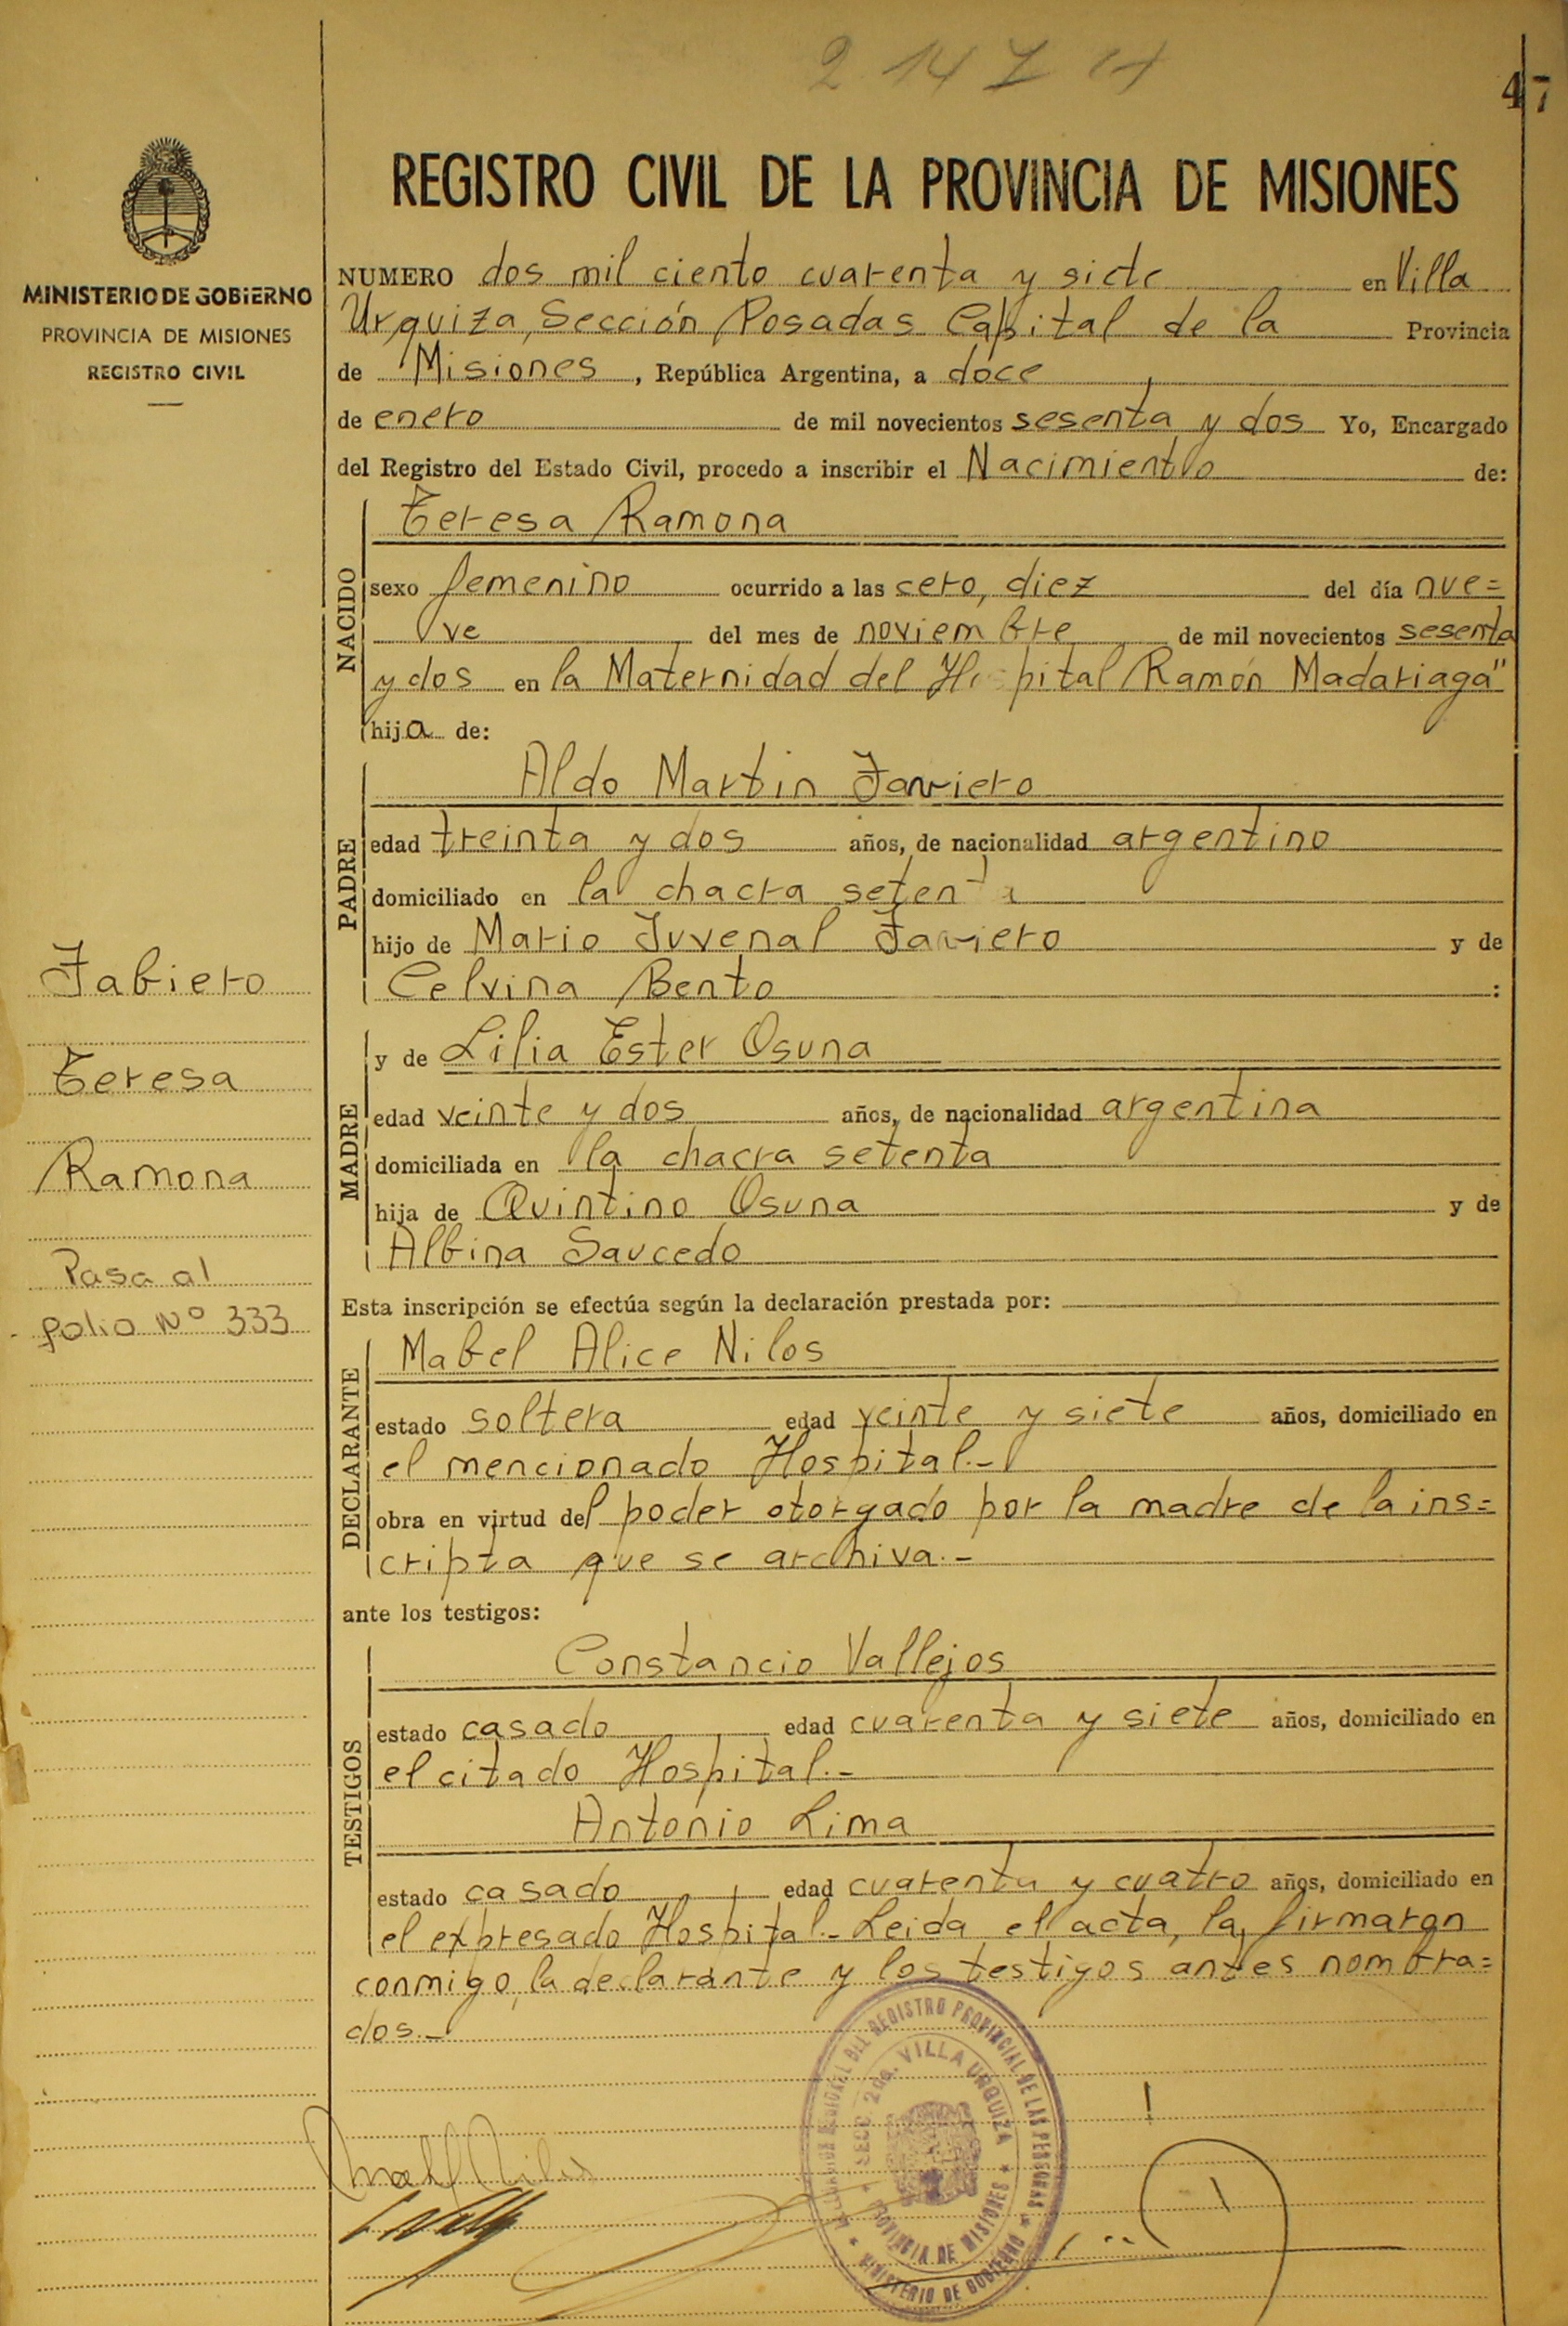 2147
47
MINISTERIO DE GOBIERNO
PROVINCIA DE MISIONES
REGISTRO CIVIL
REGISTRO CIVIL DE LA PROVINCIA DE MISIONES
NUMERO dos mil ciento cuarenta y siete en Villa
Urquiza, Sección Posadas Capital de la Provincia
de Misiones, República Argentina, a doce
de enero de mil novecientos sesenta y dos Yo, Encargado
del Registro del Estado Civil, procedo a inscribir el Nacimiento de:
NACIDO
Teresa Ramona
sexo femenino ocurrido a las cero, diez del día nue=
ve del mes de noviembre de mil novecientos sesenta
y dos en la Maternidad del Hospital Ramón Madariaga"
hija de:
PADRE
Aldo Martin Javiero
edad treinta y dos años, de nacionalidad argentino
domiciliado en la chacra setenta
hijo de Mario Juvenal Javiero y de
Celvina Bento :
MADRE
y de Lilia Ester Osuna
edad veinte y dos años, de nacionalidad argentina
domiciliada en la chacra setenta
hija de Quintino Osuna y de
Albina Saucedo
Jabiero
Teresa
Ramona
Pasa al
folio Nº 333
Esta inscripción se efectúa según la declaración prestada por:
DECLARANTE
Mabel Alice Nilos
estado soltera edad veinte y siete años, domiciliado en
el mencionado Hospital.-
obra en virtud del poder otorgado por la madre de la ins=
cripta que se archiva.-
ante los testigos:
TESTIGOS
Constancio Vallejos
estado casado edad cuarenta y siete años, domiciliado en
el citado Hospital.-
Antonio Lima
estado casado edad cuarenta y cuatro años, domiciliado en
el expresado Hospital.- Leida el acta, la firmaron
conmigo, la declarante y los testigos antes nombra=
dos.-
DEL REGISTRO PROVINCIAL DE LAS PERSONAS
SECC. 2da. VILLA URQUIZA
PROVINCIA DE MISIONES
MINISTERIO DE GOBIERNO